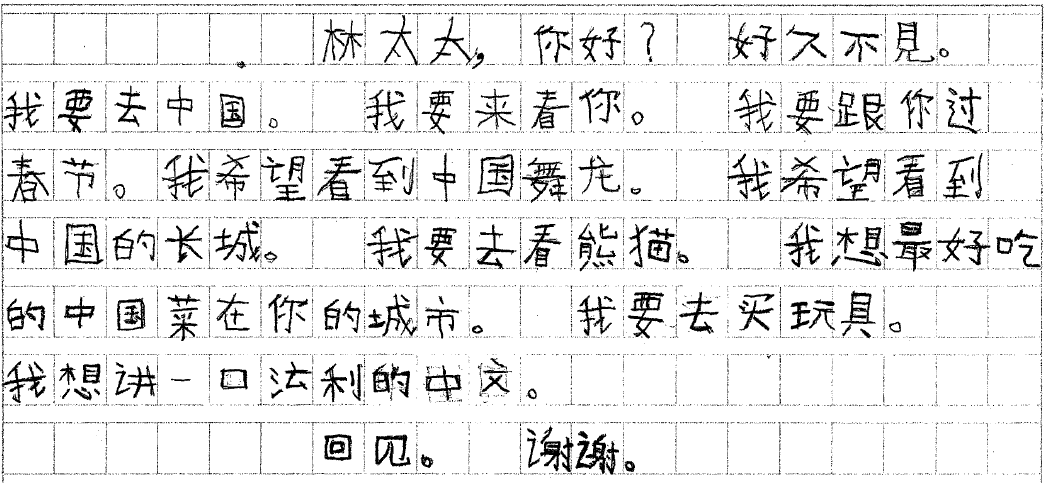 林太太，你好？ 好久不見。
我要去中国。 我要来看你。 我要跟你过
春节。我希望看到中国舞龙。 我希望看到
中国的长城。 我要去看熊猫。 我想最好吃
的中国菜在你的城市。 我要去买玩具。
我想讲一口法利的中文。
回见。 谢谢。